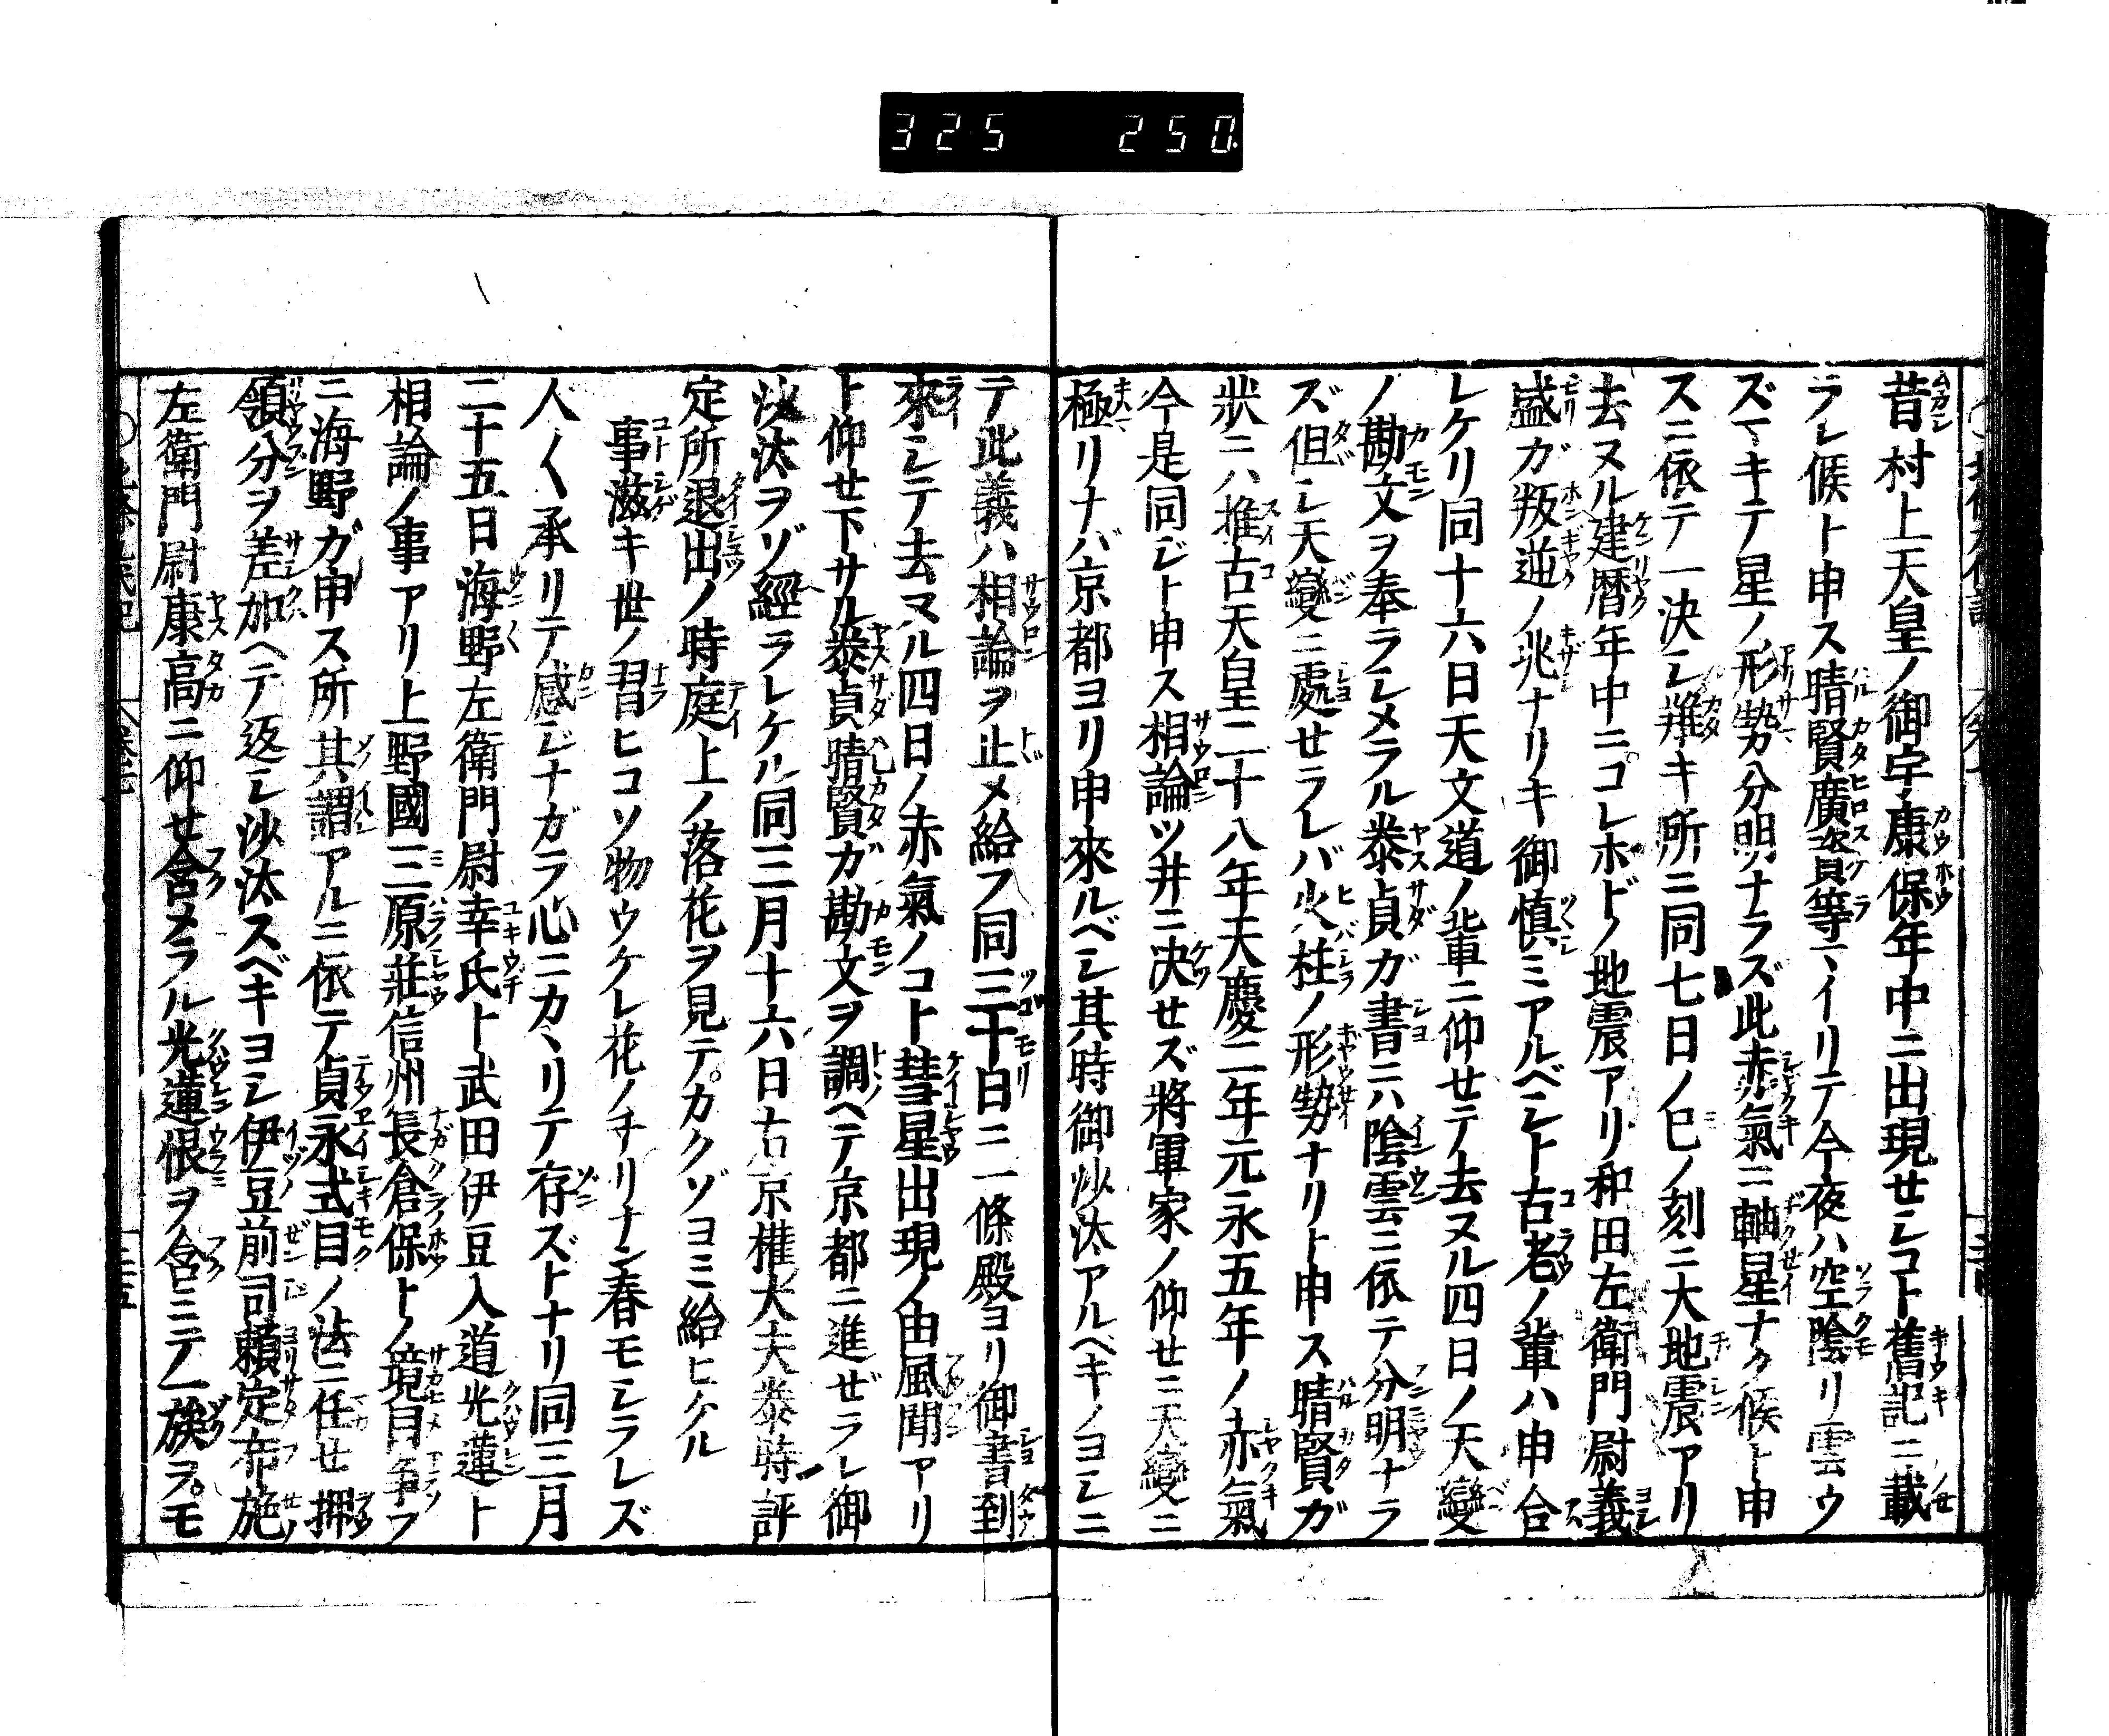 325 250
昔村上天皇ノ御宇康保年中ニ出現せシコト舊記ニ載
ラレ候ト申ス晴賢廣資等マイリテ今夜ハ空陰リ雲ウ
ズマキテ星ノ形勢分明ナラズ此赤氣ニ軸星ナク候ト申
スニ依テ一决シ難キ所ニ同七日ノ巳ノ刻ニ大地震アリ
去ヌル建暦年中ニコレホドノ地震アリ和田左衛門尉義
盛ガ叛逆ノ兆ナリキ御慎ミアルベシト古老ノ輩ハ申合
レケリ同十六日天文道ノ輩ニ仰せテ去ヌル四日ノ天變
ノ勘文ヲ奉ラシメラル泰貞ガ書ニハ陰雲ニ依テ分明ナラ
ズ但シ天變ニ處せラレバ火柱ノ形勢ナリト申ス晴賢ガ
狀ニハ推古天皇二十八年天慶二年元永五年ノ赤氣
今是同ジト申ス相論ツ井ニ决せズ將軍家ノ仰せニ天變ニ
極リナバ京都ヨリ申來ルベシ其時御沙汰アルベキノヨシニ
テ此義ハ相論ヲ止メ給フ同三十日ニ一條殿ヨリ御書到
來シテ去マル四日ノ赤氣ノコト彗星出現ノ由風聞アリ
ト仰せ下サル泰貞晴賢ガ勘文ヲ調ヘテ京都ニ進ぜラレ御
沙汰ヲゾ經ラレケル同三月十六日右京權大夫泰時評
定所退出ノ時庭上ノ落花ヲ見テカクゾヨミ給ヒケル
事滋キ世ノ習ヒコソ物ウケレ花ノチリナン春モシラレズ
人〱承リテ感ジナガラ心ニカヽリテ存ズトナリ同三月
二十五日海野左衛門尉幸氏ト武田伊豆入道光蓮ト
相論ノ事アリ上野國三原莊信州長倉保トノ境目争フ
ニ海野ガ申ス所其謂アルニ依テ貞永式目ノ法ニ任せ押
領分ヲ差加ヘテ返シ沙汰スベキヨシ伊豆前司頼定布施
左衛門尉康高ニ仰せ含メラル光蓮恨ヲ含ミテ一族ヲモ